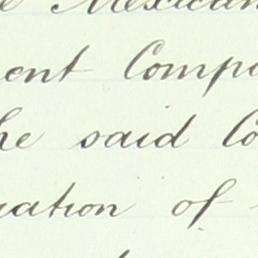 e Mexican
ent Compa
he said Co
uation of